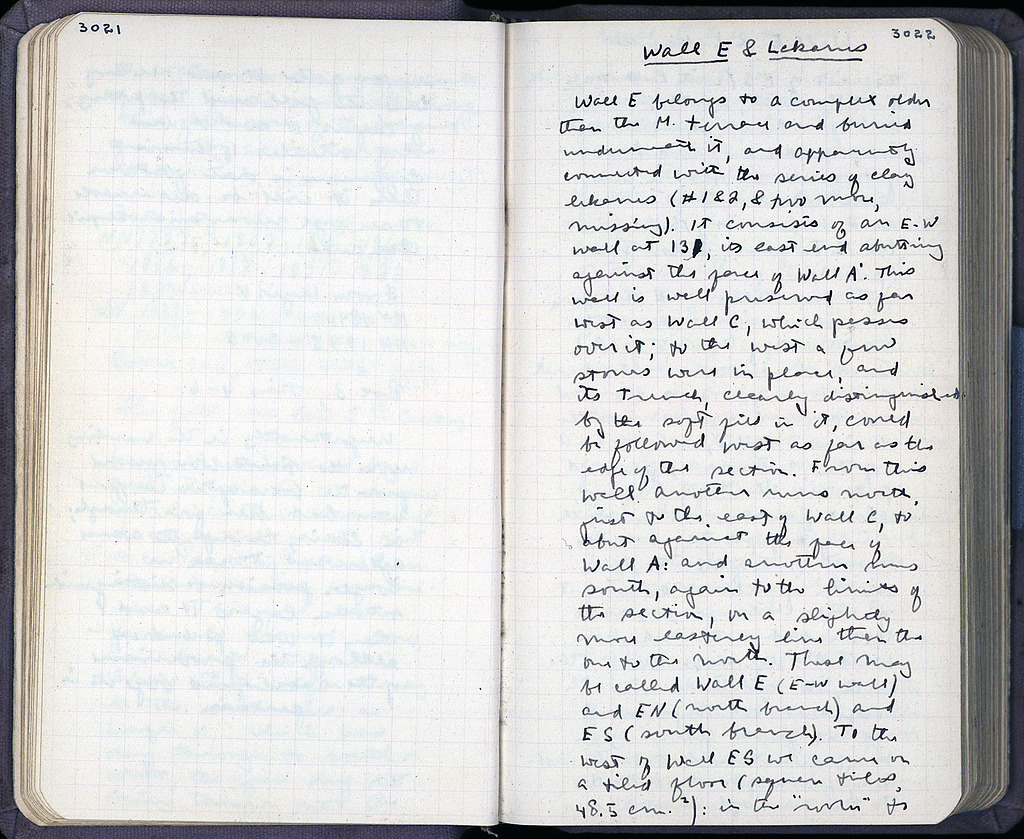 3021
3022
Wall E & Lekanes
Wall E belongs to a complex older
than the M. Terrace and buried
underneath it, and apparently
connected with the series of clay
lekanes (#1&2, & two more,
missing). It consists of an E-W
wall at 131, its east end abutting
against the face of Wall A. This
wall is well preserved as far
west as Wall C, which passes
over it; to the west a few
stones were in place, and
its trench, clearly distinguished
by the soft fill in it, could
be followed west as far as the
edge of the section. From this
wall another runs north,
just to the east of Wall C, to
abut against the face of
Wall A: and another runs
south, again to the limits of
the section, on a slightly
more easterly line than the
one to the north. These may
be called Wall E (E-W wall)
and EN (north branch) and
ES (south branch). To the
west of Wall ES we came on
a tiled floor (square tiles,
48.5 cm.²): in the "room" to